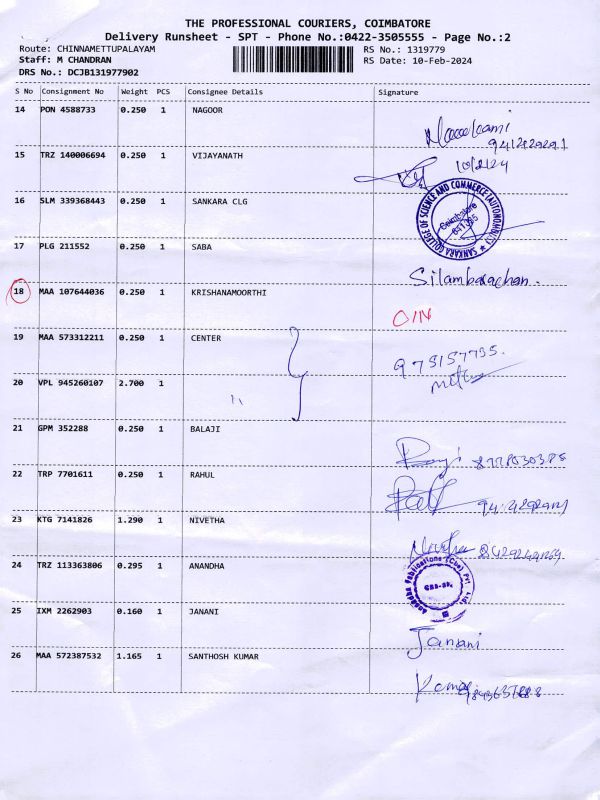 THE PROFESSIONAL COURIERS, COIMBATORE
Delivery Runsheet - SPT - Phone No.:0422-3505555 - Page No.:2
Route: CHINNAMETTUPALAYAM RS No.: 1319779
Staff: M CHANDRAN RS Date: 10-Feb-2024
DRS No.: DCJB131977902
S No Consignment No Weight PCS Consignee Details Signature
14 PON 4588733 0.250 1 NAGOOR
15 TRZ 140006694 0.250 1 VIJAYANATH
10/2/24
16 SLM 339368443 0.250 1 SANKARA CLG
SANKARA COLLEGE OF SCIENCE AND COMMERCE (AUTONOMOUS)
Coimbatore
17 PLG 211552 0.250 1 SABA
Silambarachan.
18 MAA 107644036 0.250 1 KRISHANAMOORTHI
O/N
19 MAA 573312211 0.250 1 CENTER
20 VPL 945260107 2.700 1
21 GPM 352288 0.250 1 BALAJI
22 TRP 7701611 0.250 1 RAHUL
23 KTG 7141826 1.290 1 NIVETHA
24 TRZ 113363806 0.295 1 ANANDHA
25 IXM 2262903 0.160 1 JANANI
Janani
26 MAA 572387532 1.165 1 SANTHOSH KUMAR